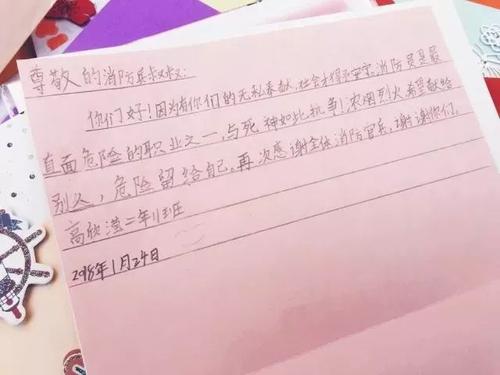 尊敬的消防兵叔叔:
你们好!因为有你们的无私奉献,社会才得以安宁。消防员是最
直面危险的职业之一,与死神如此抗争!浓烟烈火希望献给
别人,危险留给自己。再次感谢全体消防官兵,谢谢你们。
高欣滢二年1班
2018年1月24日